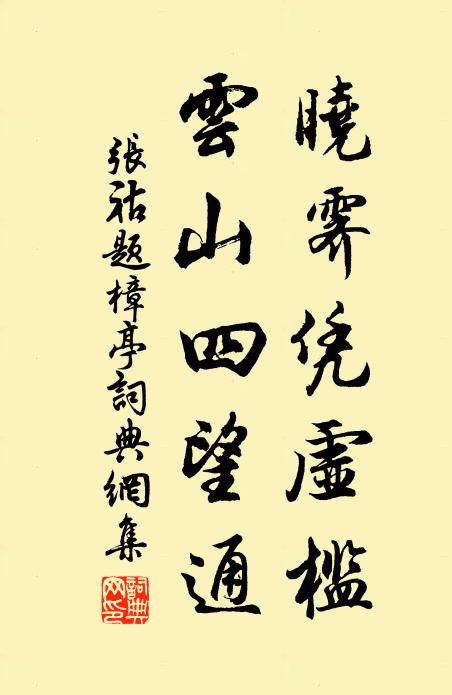 曉霽凭虛檻
雲山四望通
張祜題樟亭詞典網集
詞典網印